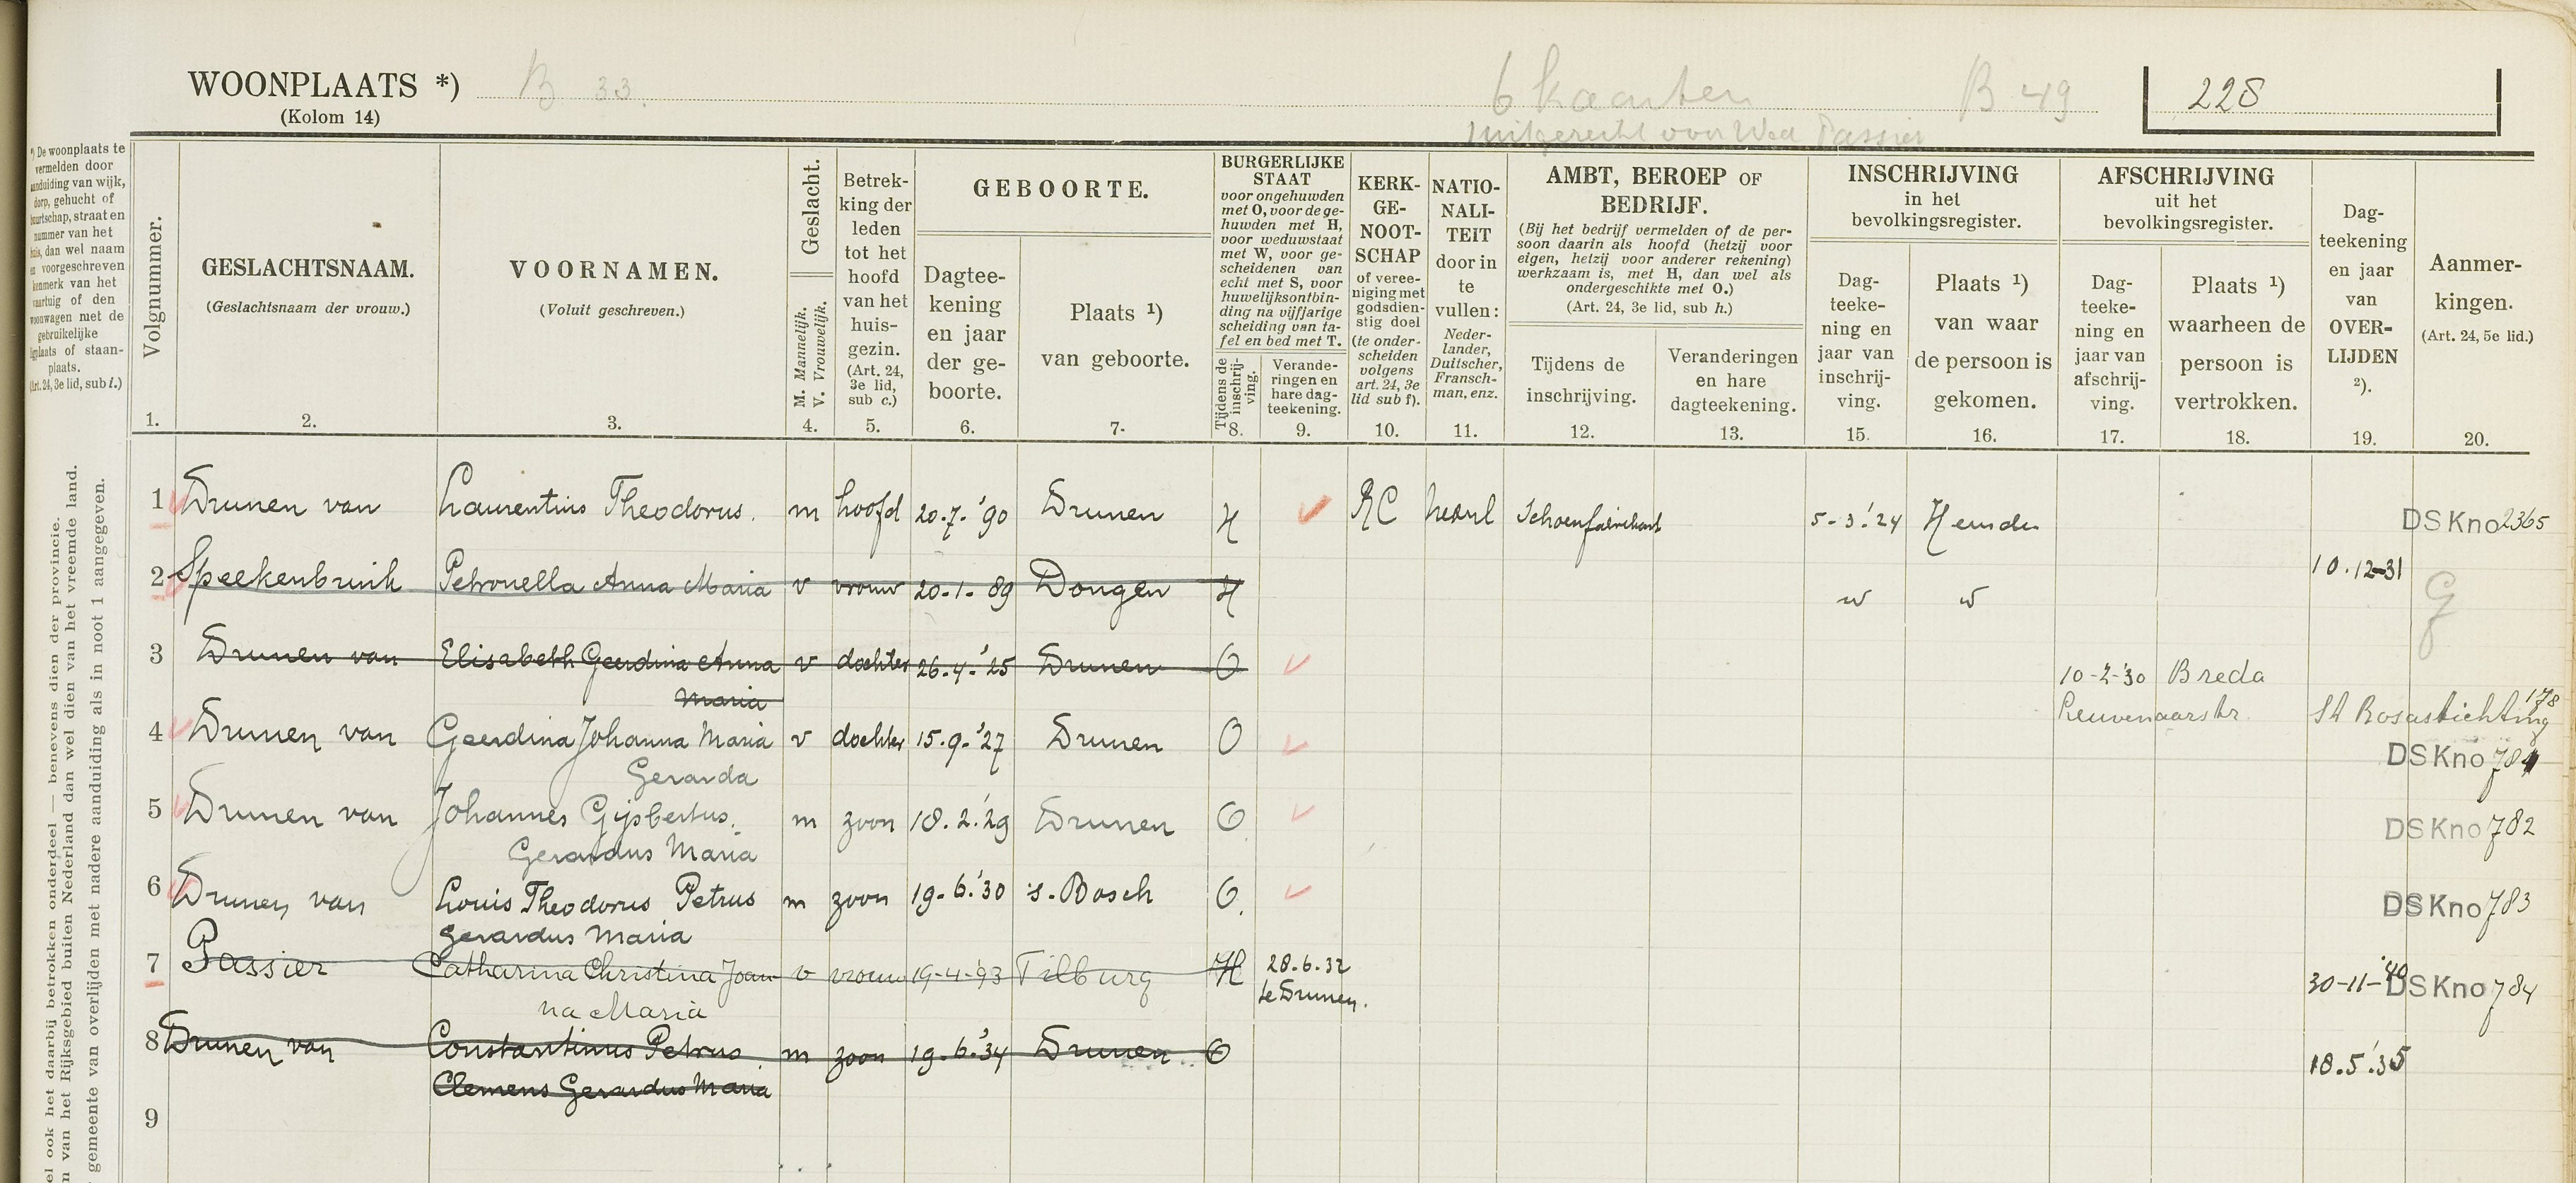 WOONPLAATS *) B 33. 6 kaarten B 49 228
(Kolom 14)
voor Wed Passier
*) De woonplaats te
vermelden door
aanduiding van wijk,
dorp, gehucht of
buurtschap, straat en
nummer van het
huis, dan wel naam
en voorgeschreven
kenmerk van het
vaartuig of den
woonwagen met de
gebruikelijke
ligplaats of staan-
plaats.
(Art. 24, 3e lid, sub l.)
Volgnummer.
1.
GESLACHTSNAAM.
(Geslachtsnaam der vrouw.)
2.
VOORNAMEN.
(Voluit geschreven.)
3.
Geslacht.
M. Mannelijk.
V. Vrouwelijk.
4.
Betrek-
king der
leden
tot het
hoofd
van het
huis-
gezin.
(Art. 24,
3e lid,
sub c.)
5.
GEBOORTE.
Dagtee-
kening
en jaar
der ge-
boorte.
6.
Plaats ¹)
van geboorte.
7.
BURGERLIJKE
STAAT
voor ongehuwden
met O, voor de ge-
huwden met H,
voor weduwstaat
met W, voor ge-
scheidenen van
echt met S, voor
huwelijksontbin-
ding na vijfjarige
scheiding van ta-
fel en bed met T.
Tijdens de
inschrij-
ving.
8.
Verande-
ringen en
hare dag-
teekening.
9.
KERK-
GE-
NOOT-
SCHAP
of veree-
niging met
godsdien-
stig doel
(te onder-
scheiden
volgens
art. 24, 3e
lid sub f).
10.
NATIO-
NALI-
TEIT
door in
te
vullen:
Neder-
lander,
Duitscher,
Fransch-
man, enz.
11.
AMBT, BEROEP OF
BEDRIJF.
(Bij het bedrijf vermelden of de per-
soon daarin als hoofd (hetzij voor
eigen, hetzij voor anderer rekening)
werkzaam is, met H, dan wel als
ondergeschikte met O.)
(Art. 24, 3e lid, sub h.)
Tijdens de
inschrijving.
12.
Veranderingen
en hare
dagteekening.
13.
INSCHRIJVING
in het
bevolkingsregister.
Dag-
teeke-
ning en
jaar van
inschrij-
ving.
15.
Plaats ¹)
van waar
de persoon is
gekomen.
16.
AFSCHRIJVING
uit het
bevolkingsregister.
Dag-
teeke-
ning en
jaar van
afschrij-
ving.
17.
Plaats ¹)
waarheen de
persoon is
vertrokken.
18.
Dag-
teekening
en jaar
van
OVER-
LIJDEN
²).
19.
Aanmer-
kingen.
(Art. 24, 5e lid.)
20.
1 Drunen van Laurentius Theodorus. m hoofd 20-7-'90 Drunen H RC Nederl Schoenfabrikant 5-3-'24 Heusden DSKno 2365
2 Speekenbrink Petronella Anna Maria v vrouw 20-1-89 Dongen H 10.12-31 G
3 Drunen van Elisabeth Geerdina Anna v dochter 26-4-'25 Drunen O 10-2-'30 Breda
Maria Leuvenaarstr. St Rosastichting 178
4 Drunen van Geerdina Johanna Maria v dochter 15-9-'27 Drunen O DSKno 781
Gerarda
5 Drunen van Johannes Gijsbertus. m zoon 18.2.'29 Drunen O DSKno 782
Gerardus Maria
6 Drunen van Louis Theodorus Petrus m zoon 19-6.'30 's-Bosch O. DSKno 783
Gerardus Maria
7 Passier Catharina Christina Joan- v vrouw 19-4-'93 Tilburg H 28.6.32 30-11-'40 DSKno 784
na Maria te Drunen.
8 Drunen van Constantinus Petrus m zoon 19-6-'34 Drunen O 18.5.'35
Clemens Gerardus Maria
9
el ook het daarbij betrokken onderdeel — benevens dien der provincie.
n van het Rijksgebied buiten Nederland dan wel dien van het vreemde land.
gemeente van overlijden met nadere aanduiding als in noot 1 aangegeven.